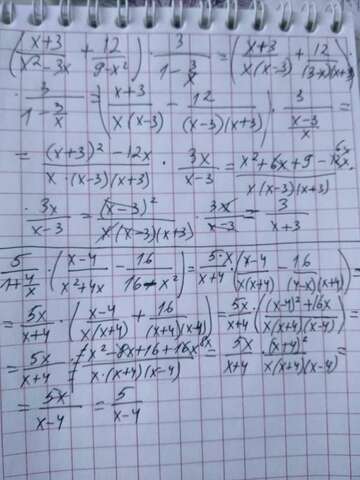 (x+3/x²-3x + 12/9-x²) · 3/1-3/x = (x+3/x(x-3) + 12/(3-x)(x+3)) ·
· 3/1-3/x = (x+3/x(x-3) - 12/(x-3)(x+3)) · 3/x-3/x =
= (x+3)²-12x/x·(x-3)(x+3) · 3x/x-3 = x²+6x+9-12x/x(x-3)(x+3) ·
· 3x/x-3 = (x-3)²/x(x-3)(x+3) · 3x/x-3 = 3/x+3
5/1+4/x · (x-4/x²+4x - 16/16-x²) = 5·x/x+4 · (x-4/x(x+4) - 16/(4-x)(x+4)) =
= 5x/x+4 · (x-4/x(x+4) + 16/(x+4)(x-4)) = 5x/x+4 · ((x-4)²+16x/x(x+4)(x-4)) =
= 5x/x+4 · x²-8x+16+16x/x·(x+4)(x-4) = 5x/x+4 · (x+4)²/x(x+4)(x-4) =
= 5x/x-4 = 5/x-4